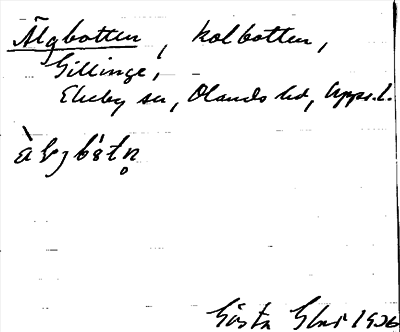 Älgbotten, kolbotten,
Gillinge,
Ekeby sn, Olands hd, Upps.l.
Gösta 1906